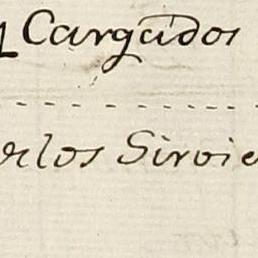 Cargados
los Sirvie